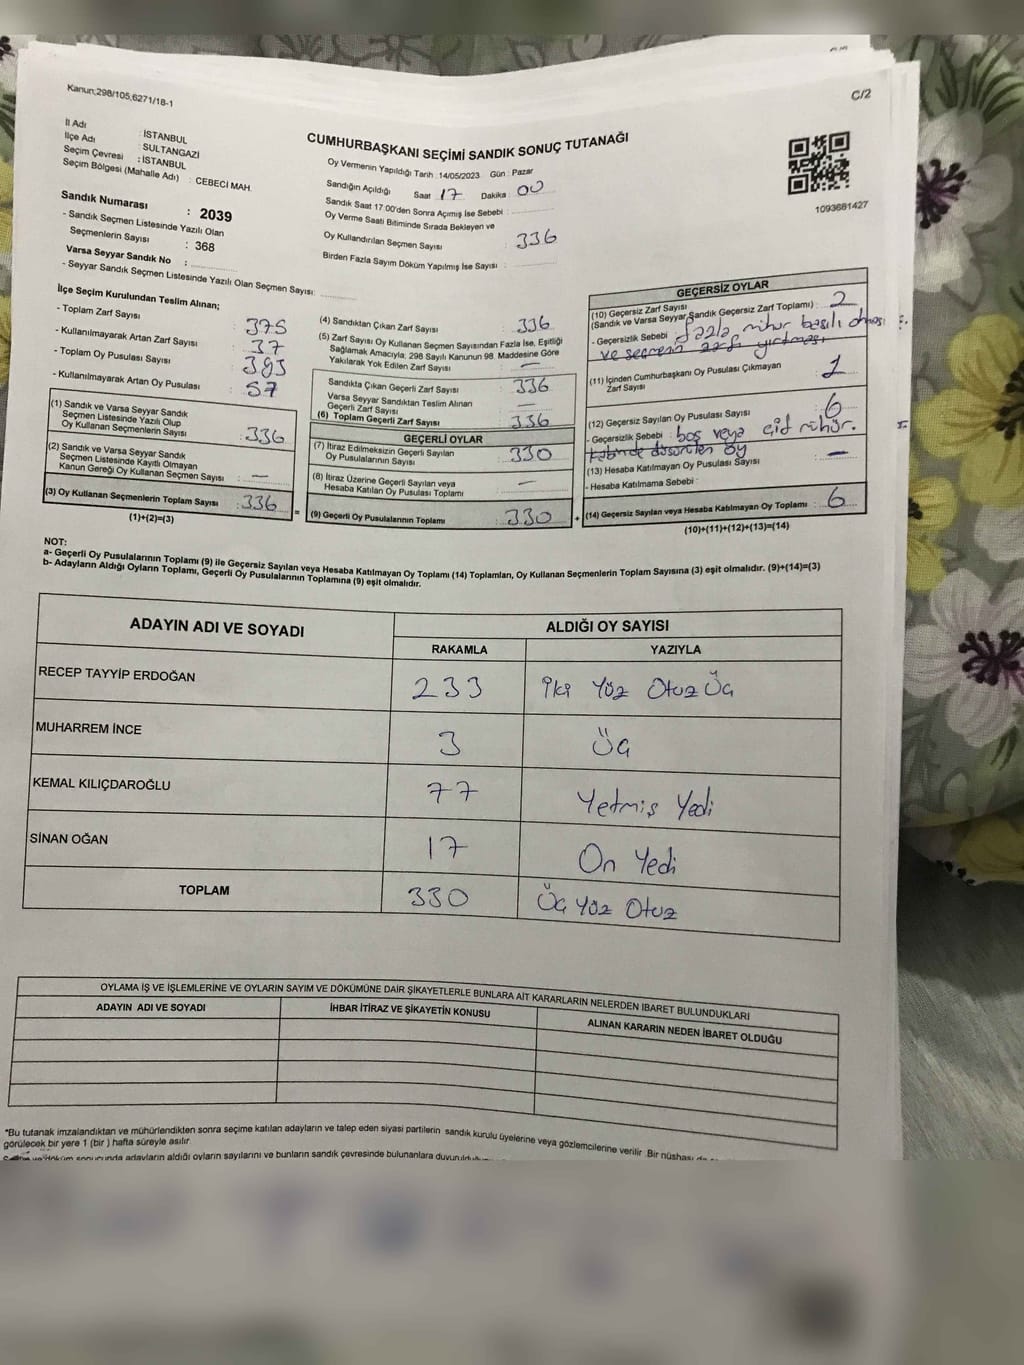 Kanun;298/105,6271/18-1
C/2
CUMHURBAŞKANI SEÇİMİ SANDIK SONUÇ TUTANAĞI
İl Adı : İSTANBUL
İlçe Adı : SULTANGAZİ
Seçim Çevresi : İSTANBUL
Seçim Bölgesi (Mahalle Adı) : CEBECİ MAH.
Oy Vermenin Yapıldığı Tarih :14/05/2023 Gün : Pazar
Sandığın Açıldığı Saat 17 Dakika : 00
Sandık Saat 17.00'den Sonra Açımış İse Sebebi :
Oy Verme Saati Bitiminde Sırada Bekleyen ve
Oy Kullandırılan Seçmen Sayısı 336
Birden Fazla Sayım Döküm Yapılmış İse Sayısı :
1093681427
Sandık Numarası : 2039
- Sandık Seçmen Listesinde Yazılı Olan
Seçmenlerin Sayısı : 368
Varsa Seyyar Sandık No :
- Seyyar Sandık Seçmen Listesinde Yazılı Olan Seçmen Sayısı:
İlçe Seçim Kurulundan Teslim Alınan;
- Toplam Zarf Sayısı : 375
- Kullanılmayarak Artan Zarf Sayısı : 37
- Toplam Oy Pusulası Sayısı : 393
- Kullanılmayarak Artan Oy Pusulası : 57
(1) Sandık ve Varsa Seyyar Sandık
Seçmen Listesinde Yazılı Olup
Oy Kullanan Seçmenlerin Sayısı : 336
(2) Sandık ve Varsa Seyyar Sandık
Seçmen Listesinde Kayıtlı Olmayan
Kanun Gereği Oy Kullanan Seçmen Sayısı : —
(3) Oy Kullanan Seçmenlerin Toplam Sayısı : 336
(1)+(2)=(3)
(4) Sandıktan Çıkan Zarf Sayısı : 336
(5) Zarf Sayısı Oy Kullanan Seçmen Sayısından Fazla İse, Eşitliği
Sağlamak Amacıyla; 298 Sayılı Kanunun 98. Maddesine Göre
Yakılarak Yok Edilen Zarf Sayısı : —
Sandıkta Çıkan Geçerli Zarf Sayısı : 336
Varsa Seyyar Sandıktan Teslim Alınan
Geçerli Zarf Sayısı : —
(6) Toplam Geçerli Zarf Sayısı : 336
GEÇERLİ OYLAR
(7) İtiraz Edilmeksizin Geçerli Sayılan
Oy Pusulalarının Sayısı : 330
(8) İtiraz Üzerine Geçerli Sayılan veya
Hesaba Katılan Oy Pusulası Toplamı : —
= (9) Geçerli Oy Pusulalarının Toplamı : 330
GEÇERSİZ OYLAR
(10) Geçersiz Zarf Sayısı
(Sandık ve Varsa Seyyar Sandık Geçersiz Zarf Toplamı) : 2
- Geçersizlik Sebebi : fazla mühür basılı olması
ve seçmenin zarfı yırtması
(11) İçinden Cumhurbaşkanı Oy Pusulası Çıkmayan
Zarf Sayısı : 1
(12) Geçersiz Sayılan Oy Pusulası Sayısı : 6
- Geçersizlik Sebebi : boş veya çift mühür.
kabinde düşürülen oy
(13) Hesaba Katılmayan Oy Pusulası Sayısı : —
- Hesaba Katılmama Sebebi :
+ (14) Geçersiz Sayılan veya Hesaba Katılmayan Oy Toplamı : 6
(10)+(11)+(12)+(13)=(14)
NOT:
a- Geçerli Oy Pusulalarının Toplamı (9) ile Geçersiz Sayılan veya Hesaba Katılmayan Oy Toplamı (14) Toplamları, Oy Kullanan Seçmenlerin Toplam Sayısına (3) eşit olmalıdır. (9)+(14)=(3)
b- Adayların Aldığı Oyların Toplamı, Geçerli Oy Pusulalarının Toplamına (9) eşit olmalıdır.
ADAYIN ADI VE SOYADI ALDIĞI OY SAYISI
RAKAMLA YAZIYLA
RECEP TAYYİP ERDOĞAN 233 İki Yüz Otuz Üç
MUHARREM İNCE 3 Üç
KEMAL KILIÇDAROĞLU 77 Yetmiş Yedi
SİNAN OĞAN 17 On Yedi
TOPLAM 330 Üç Yüz Otuz
OYLAMA İŞ VE İŞLEMLERİNE VE OYLARIN SAYIM VE DÖKÜMÜNE DAİR ŞİKAYETLERLE BUNLARA AİT KARARLARIN NELERDEN İBARET BULUNDUKLARI
ADAYIN ADI VE SOYADI İHBAR İTİRAZ VE ŞİKAYETİN KONUSU ALINAN KARARIN NEDEN İBARET OLDUĞU
*Bu tutanak imzalandıktan ve mühürlendikten sonra seçime katılan adayların ve talep eden siyasi partilerin sandık kurulu üyelerine veya gözlemcilerine verilir .Bir nüshası da
görülecek bir yere 1 (bir ) hafta süreyle asılır.
döküm sonucunda adayların aldığı oyların sayılarını ve bunların sandık çevresinde bulunanlara